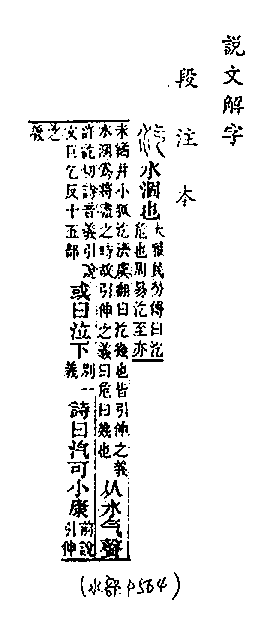 説文解字
段注本
水涸也 大雅民勞傳曰汔
危也周易汔至亦
未繘井小狐汔濟虞翻曰汔幾也皆引伸之義
水涸爲將盡之時故引伸之義曰危曰幾也
从水气聲
許訖切詩音義引說
文巨乞反十五部
或曰泣下 別一
義
詩曰汽可小康 前說
引伸
之
義
(水部 P564)